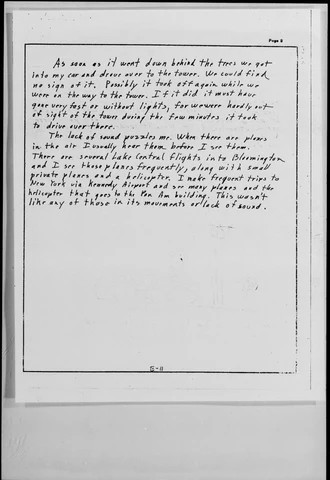 Page 2
As soon as it went down behind the trees we got
into my car and drove over to the tower. We could find
no sign of it. Possibly it took off again while we
were on the way to the tower. If it did it must have
gone very fast or without lights, for we were hardly out
of sight of the tower during the few minutes it took
to drive over there.
The lack of sound puzzles me. When there are planes
in the air I usually hear them before I see them.
There are several Lake Central flights into Bloomington
and I see those planes frequently, along with small
private planes and a helicopter. I make frequent trips to
New York via Kennedy Airport and see many planes and the
helicopter that goes to the Pan Am building. This wasn't
like any of those in its movements or lack of sound.